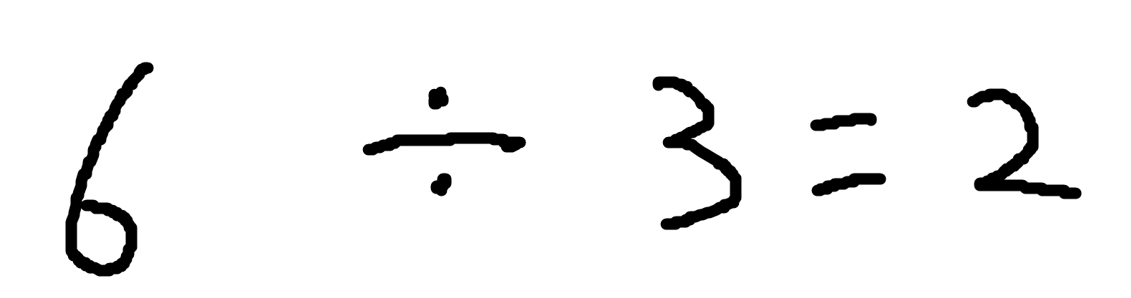 6 ÷ 3 = 2